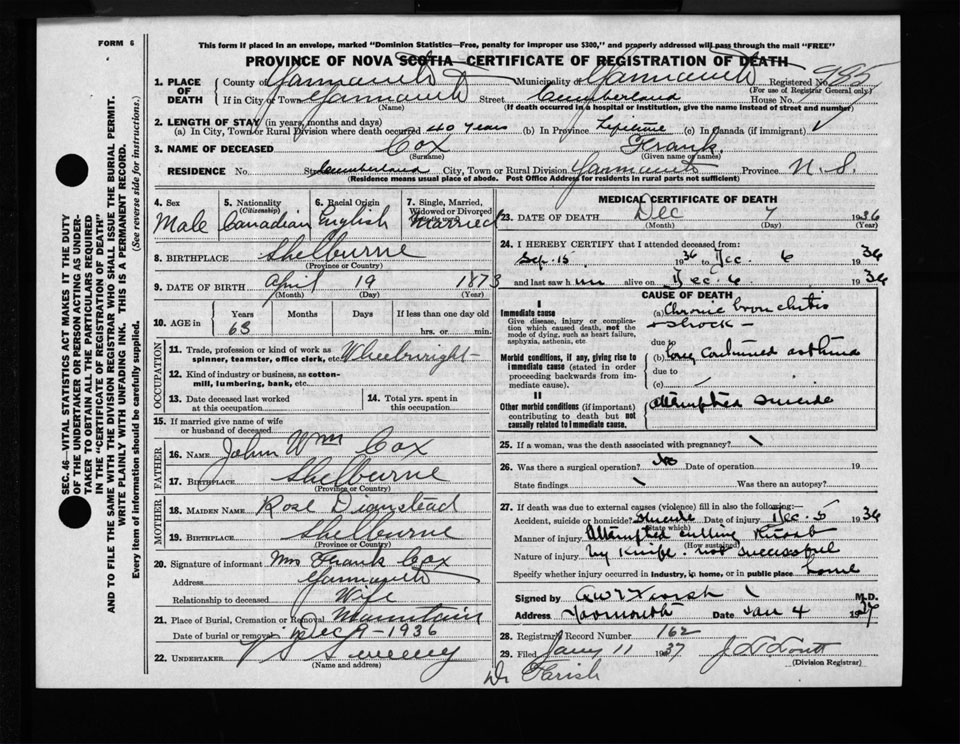 FORM 6
This form if placed in an envelope, marked "Dominion Statistics—Free, penalty for improper use $300," and properly addressed will pass through the mail "FREE"
PROVINCE OF NOVA SCOTIA—CERTIFICATE OF REGISTRATION OF DEATH
1. PLACE OF DEATH County of Yarmouth Municipality of Yarmouth Registered No. 485
(For use of Registrar General only)
If in City or Town Yarmouth Street Cumberland House No.
(Name) (If death occurred in a hospital or institution, give the name instead of street and number)
2. LENGTH OF STAY (in years, months and days)
(a) In City, Town or Rural Division where death occurred 40 years (b) In Province Lifetime (c) In Canada (if immigrant)
3. NAME OF DECEASED Cox Frank.
(Surname) (Given name or names)
RESIDENCE No. Street Cumberland City, Town or Rural Division Yarmouth Province N. S.
(Residence means usual place of abode. Post Office Address for residents in rural parts not sufficient)
4. Sex Male
5. Nationality (Citizenship) Canadian
6. Racial Origin English
7. Single, Married, Widowed or Divorced Married
8. BIRTHPLACE Shelburne
(Province or Country)
9. DATE OF BIRTH April 19 1873
(Month) (Day) (Year)
10. AGE in Years Months Days If less than one day old
63 hrs. or min.
OCCUPATION
11. Trade, profession or kind of work as spinner, teamster, office clerk, etc. Wheelwright
12. Kind of industry or business, as cotton-mill, lumbering, bank, etc.
13. Date deceased last worked at this occupation
14. Total yrs. spent in this occupation
15. If married give name of wife or husband of deceased
FATHER
16. NAME John Wm Cox
17. BIRTHPLACE Shelburne
(Province or Country)
MOTHER
18. MAIDEN NAME Rose
19. BIRTHPLACE Shelburne
(Province or Country)
20. Signature of informant Mrs Frank Cox
Address Yarmouth
Relationship to deceased Wife
21. Place of Burial, Cremation or Removal Mountain
Date of burial or removal Dec 9 - 1936
22. UNDERTAKER V S Sweeney
(Name and address)
MEDICAL CERTIFICATE OF DEATH
23. DATE OF DEATH Dec 7 1936
(Month) (Day) (Year)
24. I HEREBY CERTIFY that I attended deceased from:
Sep. 15 1936 to Dec. 6 1936
and last saw him alive on Dec. 6 1936
CAUSE OF DEATH
I
Immediate cause
Give disease, injury or complication which caused death, not the mode of dying, such as heart failure, asphyxia, asthenia, etc.
(a) Chronic bronchitis
+ shock —
due to
Morbid conditions, if any, giving rise to immediate cause (stated in order proceeding backwards from immediate cause).
(b) long continued asthma
due to
(c)
II
Other morbid conditions (if important) contributing to death but not causally related to immediate cause.
attempted suicide
25. If a woman, was the death associated with pregnancy?
26. Was there a surgical operation? No Date of operation 19
State findings Was there an autopsy?
27. If death was due to external causes (violence) fill in also the following:—
Accident, suicide or homicide? Suicide Date of injury Dec. 5 1936
(State which)
Manner of injury Attempted cutting throat
(How sustained)
Nature of injury by knife. not successful
Specify whether injury occurred in industry, in home, or in public place home
Signed by M.D.
Address Yarmouth Date Jan 4 1937
28. Registrar's Record Number 162
29. Filed Jany 11 1937
(Division Registrar)
Dr Farish
SEC. 46—VITAL STATISTICS ACT MAKES IT THE DUTY
OF THE UNDERTAKER OR PERSON ACTING AS UNDERTAKER TO OBTAIN ALL THE PARTICULARS REQUIRED
IN THE "CERTIFICATE OF REGISTRATION OF DEATH"
AND TO FILE THE SAME WITH THE DIVISION REGISTRAR WHO SHALL ISSUE THE BURIAL PERMIT.
WRITE PLAINLY WITH UNFADING INK. THIS IS A PERMANENT RECORD.
Every item of information should be carefully supplied. (See reverse side for instructions.)